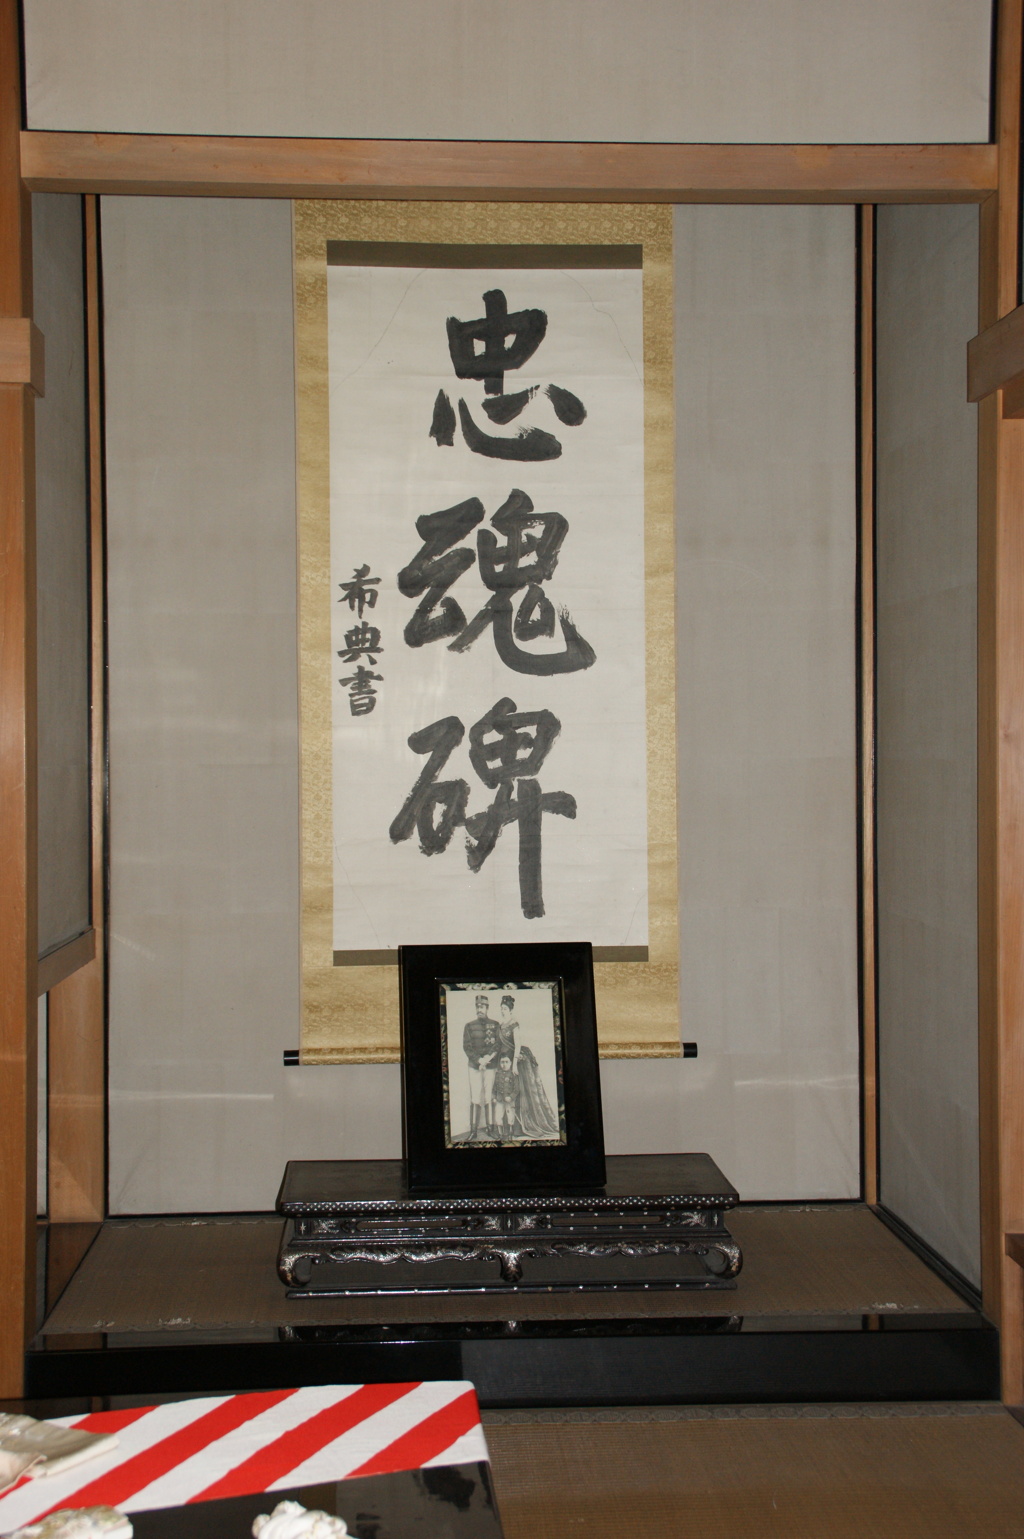 忠魂碑
希典書